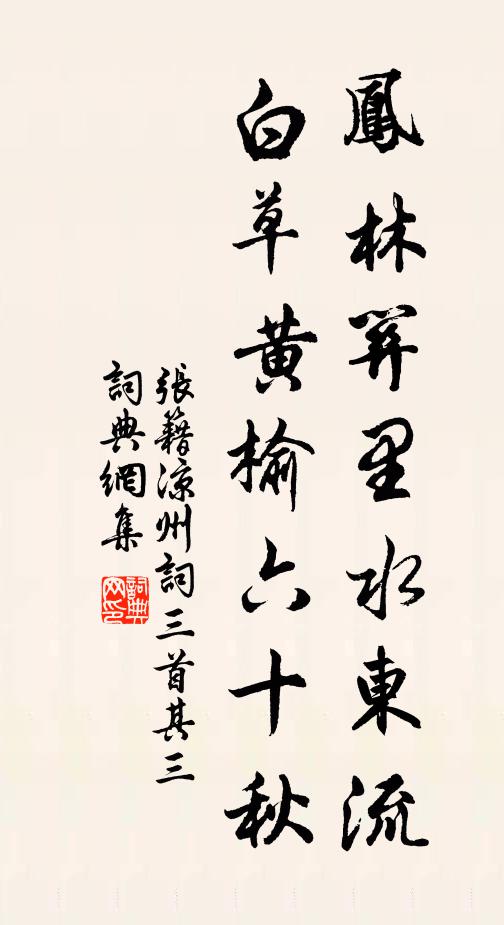 鳳林關里水東流
白草黃榆六十秋
張籍涼州詞三首其三
詞典網集
詞典
网印